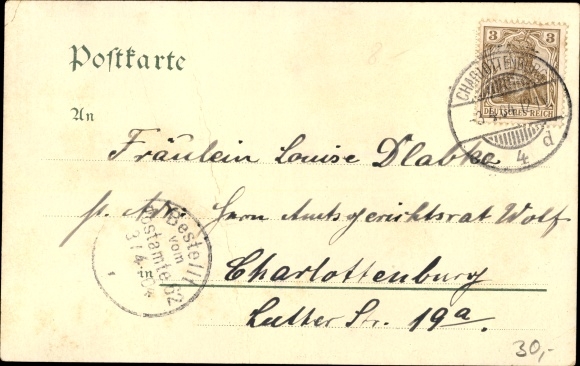 Postkarte
3 3
DEUTSCHES REICH
CHARLOTTENBURG
4 d
An
Fräulein Louise Dlabka
p. Adr. Herrn Amtsgerichtsrat Wolf
Bestellt
vom
Postamte 82
3/4.04
in Charlottenburg
Luther Str. 19a.
30,-